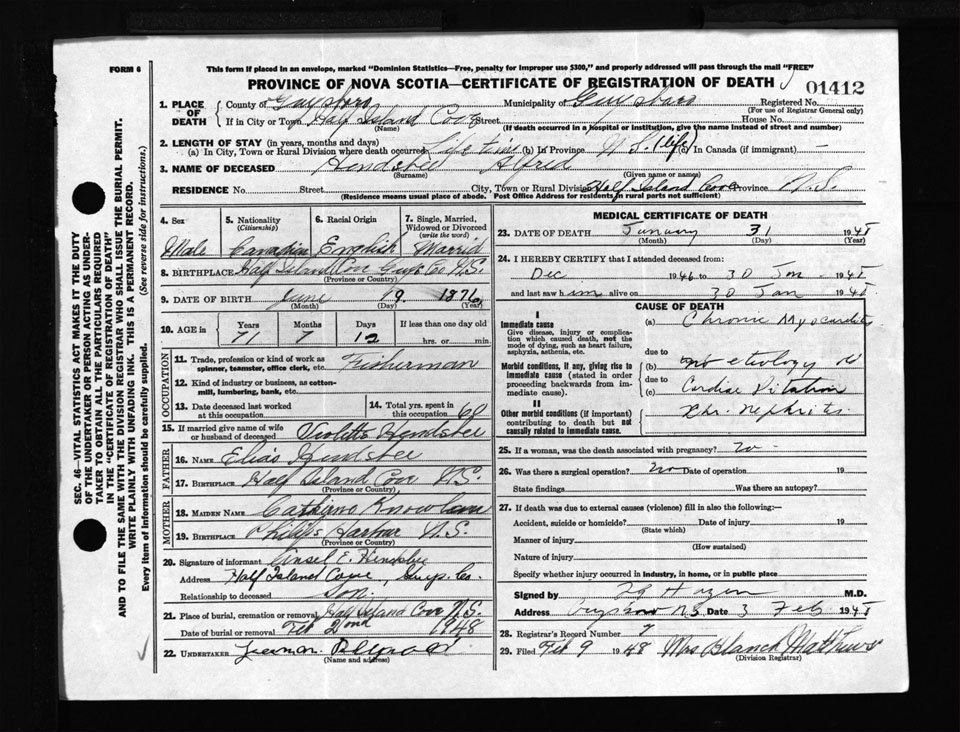 FORM 6
This form if placed in an envelope, marked "Dominion Statistics—Free, penalty for improper use $300," and properly addressed will pass through the mail "FREE"
PROVINCE OF NOVA SCOTIA—CERTIFICATE OF REGISTRATION OF DEATH
01412
1. PLACE OF DEATH
County of Guysboro Municipality of Guysboro Registered No.
(For use of Registrar General only)
If in City or Town Half Island Cove Street House No.
(Name) (If death occurred in a hospital or institution, give the name instead of street and number)
2. LENGTH OF STAY (in years, months and days)
(a) In City, Town or Rural Division where death occurred life time (b) In Province N S. (life) (c) In Canada (if immigrant) —
3. NAME OF DECEASED Alfred
(Surname) (Given name or names)
RESIDENCE No. Street City, Town or Rural Division Half Island Cove Province N.S.
(Residence means usual place of abode. Post Office Address for residents in rural parts not sufficient)
4. Sex
Male
5. Nationality
(Citizenship)
Canadian
6. Racial Origin
English
7. Single, Married, Widowed or Divorced
(write the word)
Married
8. BIRTHPLACE Half Island Cove Guys Co N.S.
(Province or Country)
9. DATE OF BIRTH June 19. 1876
(Month) (Day) (Year)
10. AGE in
Years Months Days If less than one day old
71 7 12 hrs. or min.
OCCUPATION
11. Trade, profession or kind of work as spinner, teamster, office clerk, etc. Fisherman
12. Kind of industry or business, as cotton-mill, lumbering, bank, etc.
13. Date deceased last worked at this occupation
14. Total yrs. spent in this occupation 60
15. If married give name of wife or husband of deceased
FATHER
16. NAME Elias
17. BIRTHPLACE Half Island Cove N.S.
(Province or Country)
MOTHER
18. MAIDEN NAME
19. BIRTHPLACE Philips Harbour N.S.
(Province or Country)
20. Signature of informant
Address Half Island Cove, Guys. Co.
Relationship to deceased Son.
21. Place of burial, cremation or removal Half Island Cove N.S.
Date of burial or removal Feb 2nd 1948
22. UNDERTAKER
(Name and address)
MEDICAL CERTIFICATE OF DEATH
23. DATE OF DEATH January 31 1948
(Month) (Day) (Year)
24. I HEREBY CERTIFY that I attended deceased from:
Dec 1946 to 30 Jan 1948
and last saw him alive on 30 Jan 1948
CAUSE OF DEATH
I
Immediate cause
Give disease, injury or complication which caused death, not the mode of dying, such as heart failure, asphyxia, asthenia, etc.
(a) Chronic Myocarditis
due to
Morbid conditions, if any, giving rise to immediate cause (stated in order proceeding backwards from immediate cause).
(b) etiology
due to
(c) Cardiac
II
Other morbid conditions (if important) contributing to death but not causally related to immediate cause.
Chr. nephritis
25. If a woman, was the death associated with pregnancy? No -
26. Was there a surgical operation? no Date of operation 19
State findings Was there an autopsy?
27. If death was due to external causes (violence) fill in also the following:—
Accident, suicide or homicide? Date of injury 19
(State which)
Manner of injury
(How sustained)
Nature of injury
Specify whether injury occurred in industry, in home, or in public place
Signed by M.D.
Address N S Date 3 Feb 1948
28. Registrar's Record Number 7
29. Filed Feb 9 1948 Mrs Blanch Matthews
(Division Registrar)
SEC. 46—VITAL STATISTICS ACT MAKES IT THE DUTY OF THE UNDERTAKER OR PERSON ACTING AS UNDERTAKER TO OBTAIN ALL THE PARTICULARS REQUIRED IN THE "CERTIFICATE OF REGISTRATION OF DEATH" AND TO FILE THE SAME WITH THE DIVISION REGISTRAR WHO SHALL ISSUE THE BURIAL PERMIT.
WRITE PLAINLY WITH UNFADING INK. THIS IS A PERMANENT RECORD.
Every item of information should be carefully supplied. (See reverse side for instructions.)